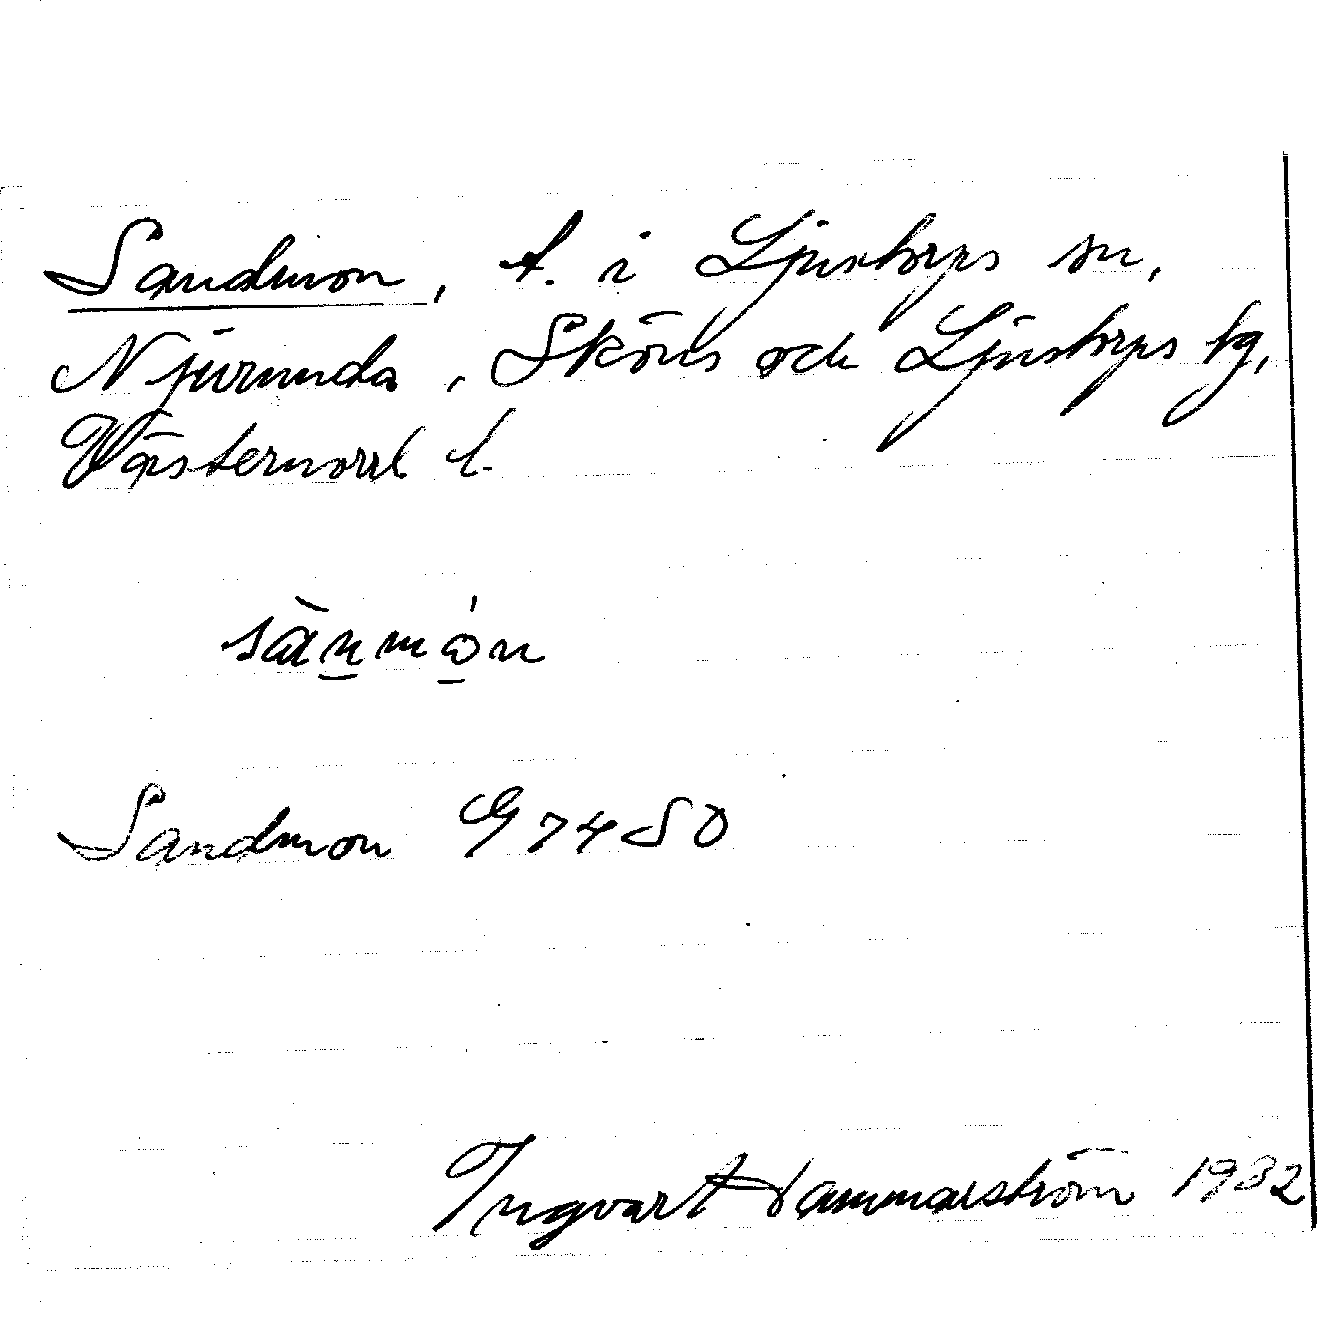 Sandmon, t. i Ljustorps sn,
Njurunda, Sköns och Ljustorps tg,
Västernorrl l.
sàn̲mó̲n
Sandmon G 74 SO
Ingvart Hammarström 1932